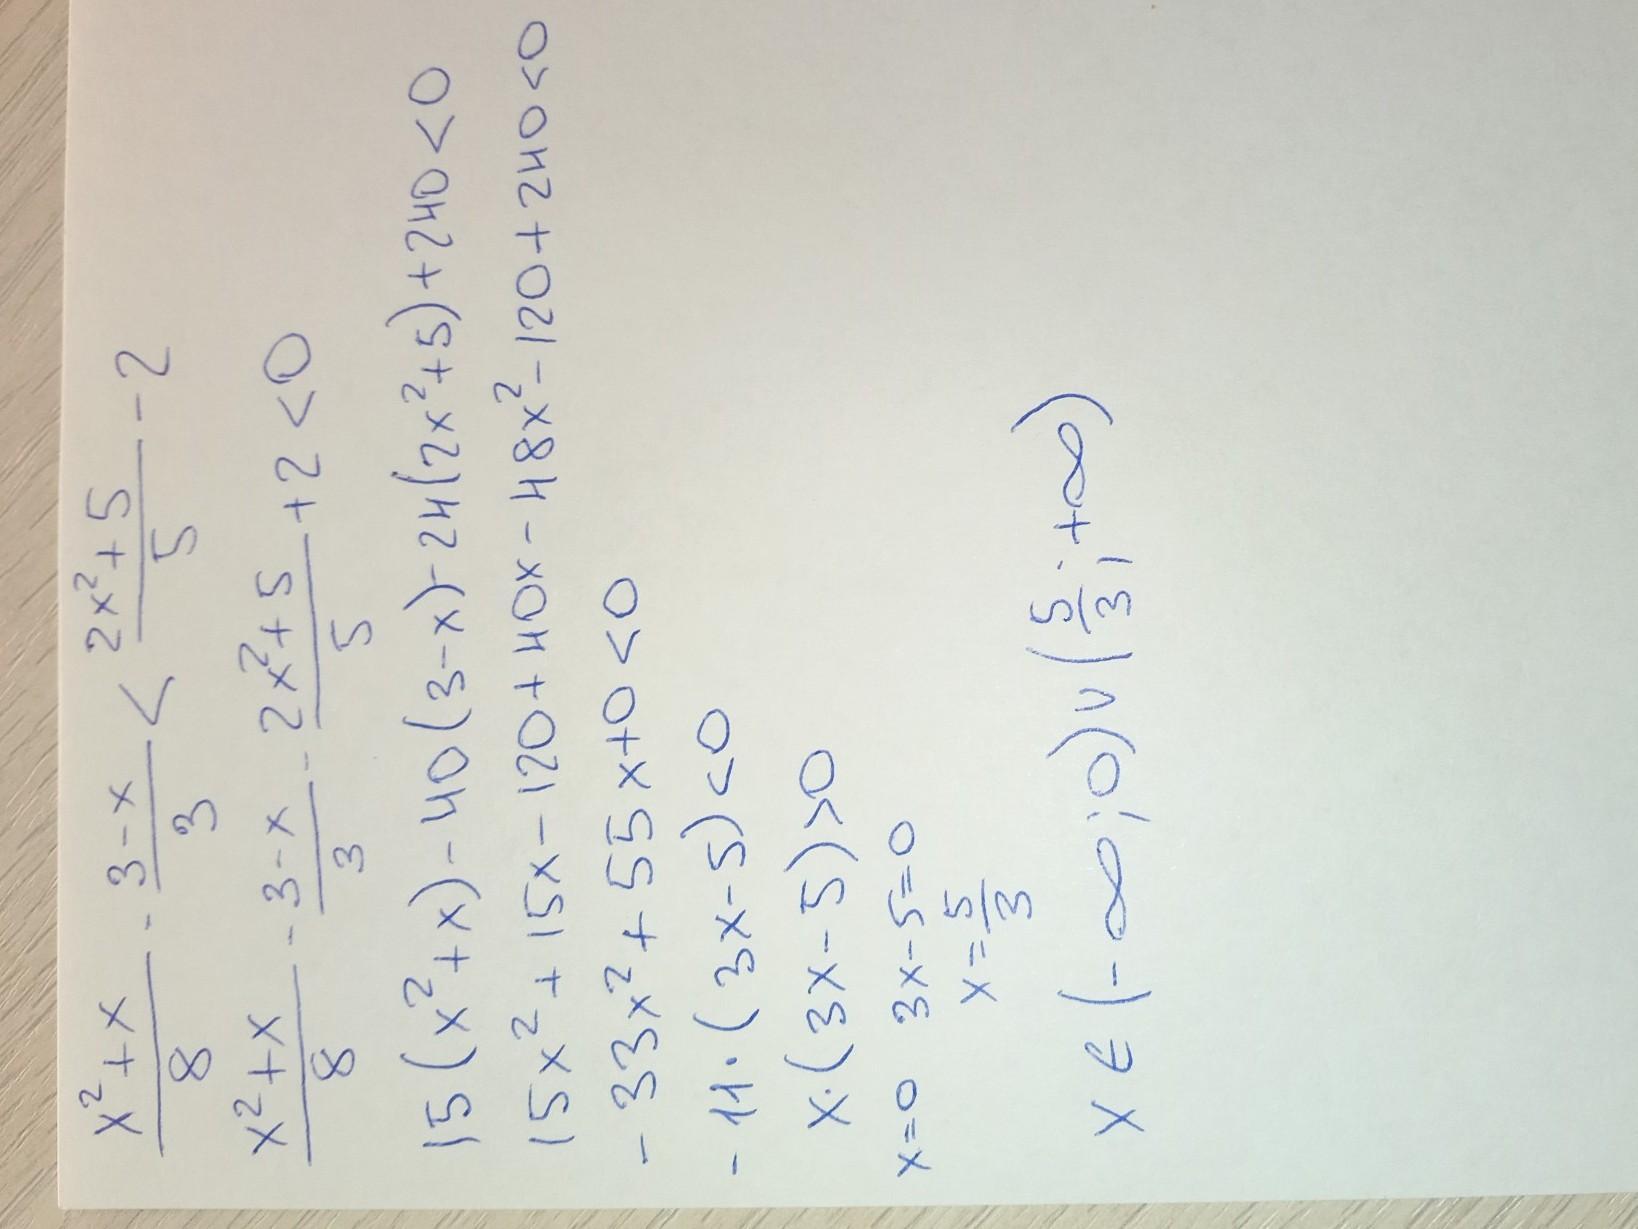 (x²+x)/8 - (3-x)/3 < (2x²+5)/5 - 2
(x²+x)/8 - (3-x)/3 - (2x²+5)/5 + 2 < 0
15(x²+x)-40(3-x)-24(2x²+5)+240<0
15x²+15x-120+40x-48x²-120+240<0
-33x²+55x+0<0
-11·(3x-5)<0
x·(3x-5)>0
x=0 3x-5=0
x=5/3
x∈(-∞;0)∪(5/3;+∞)